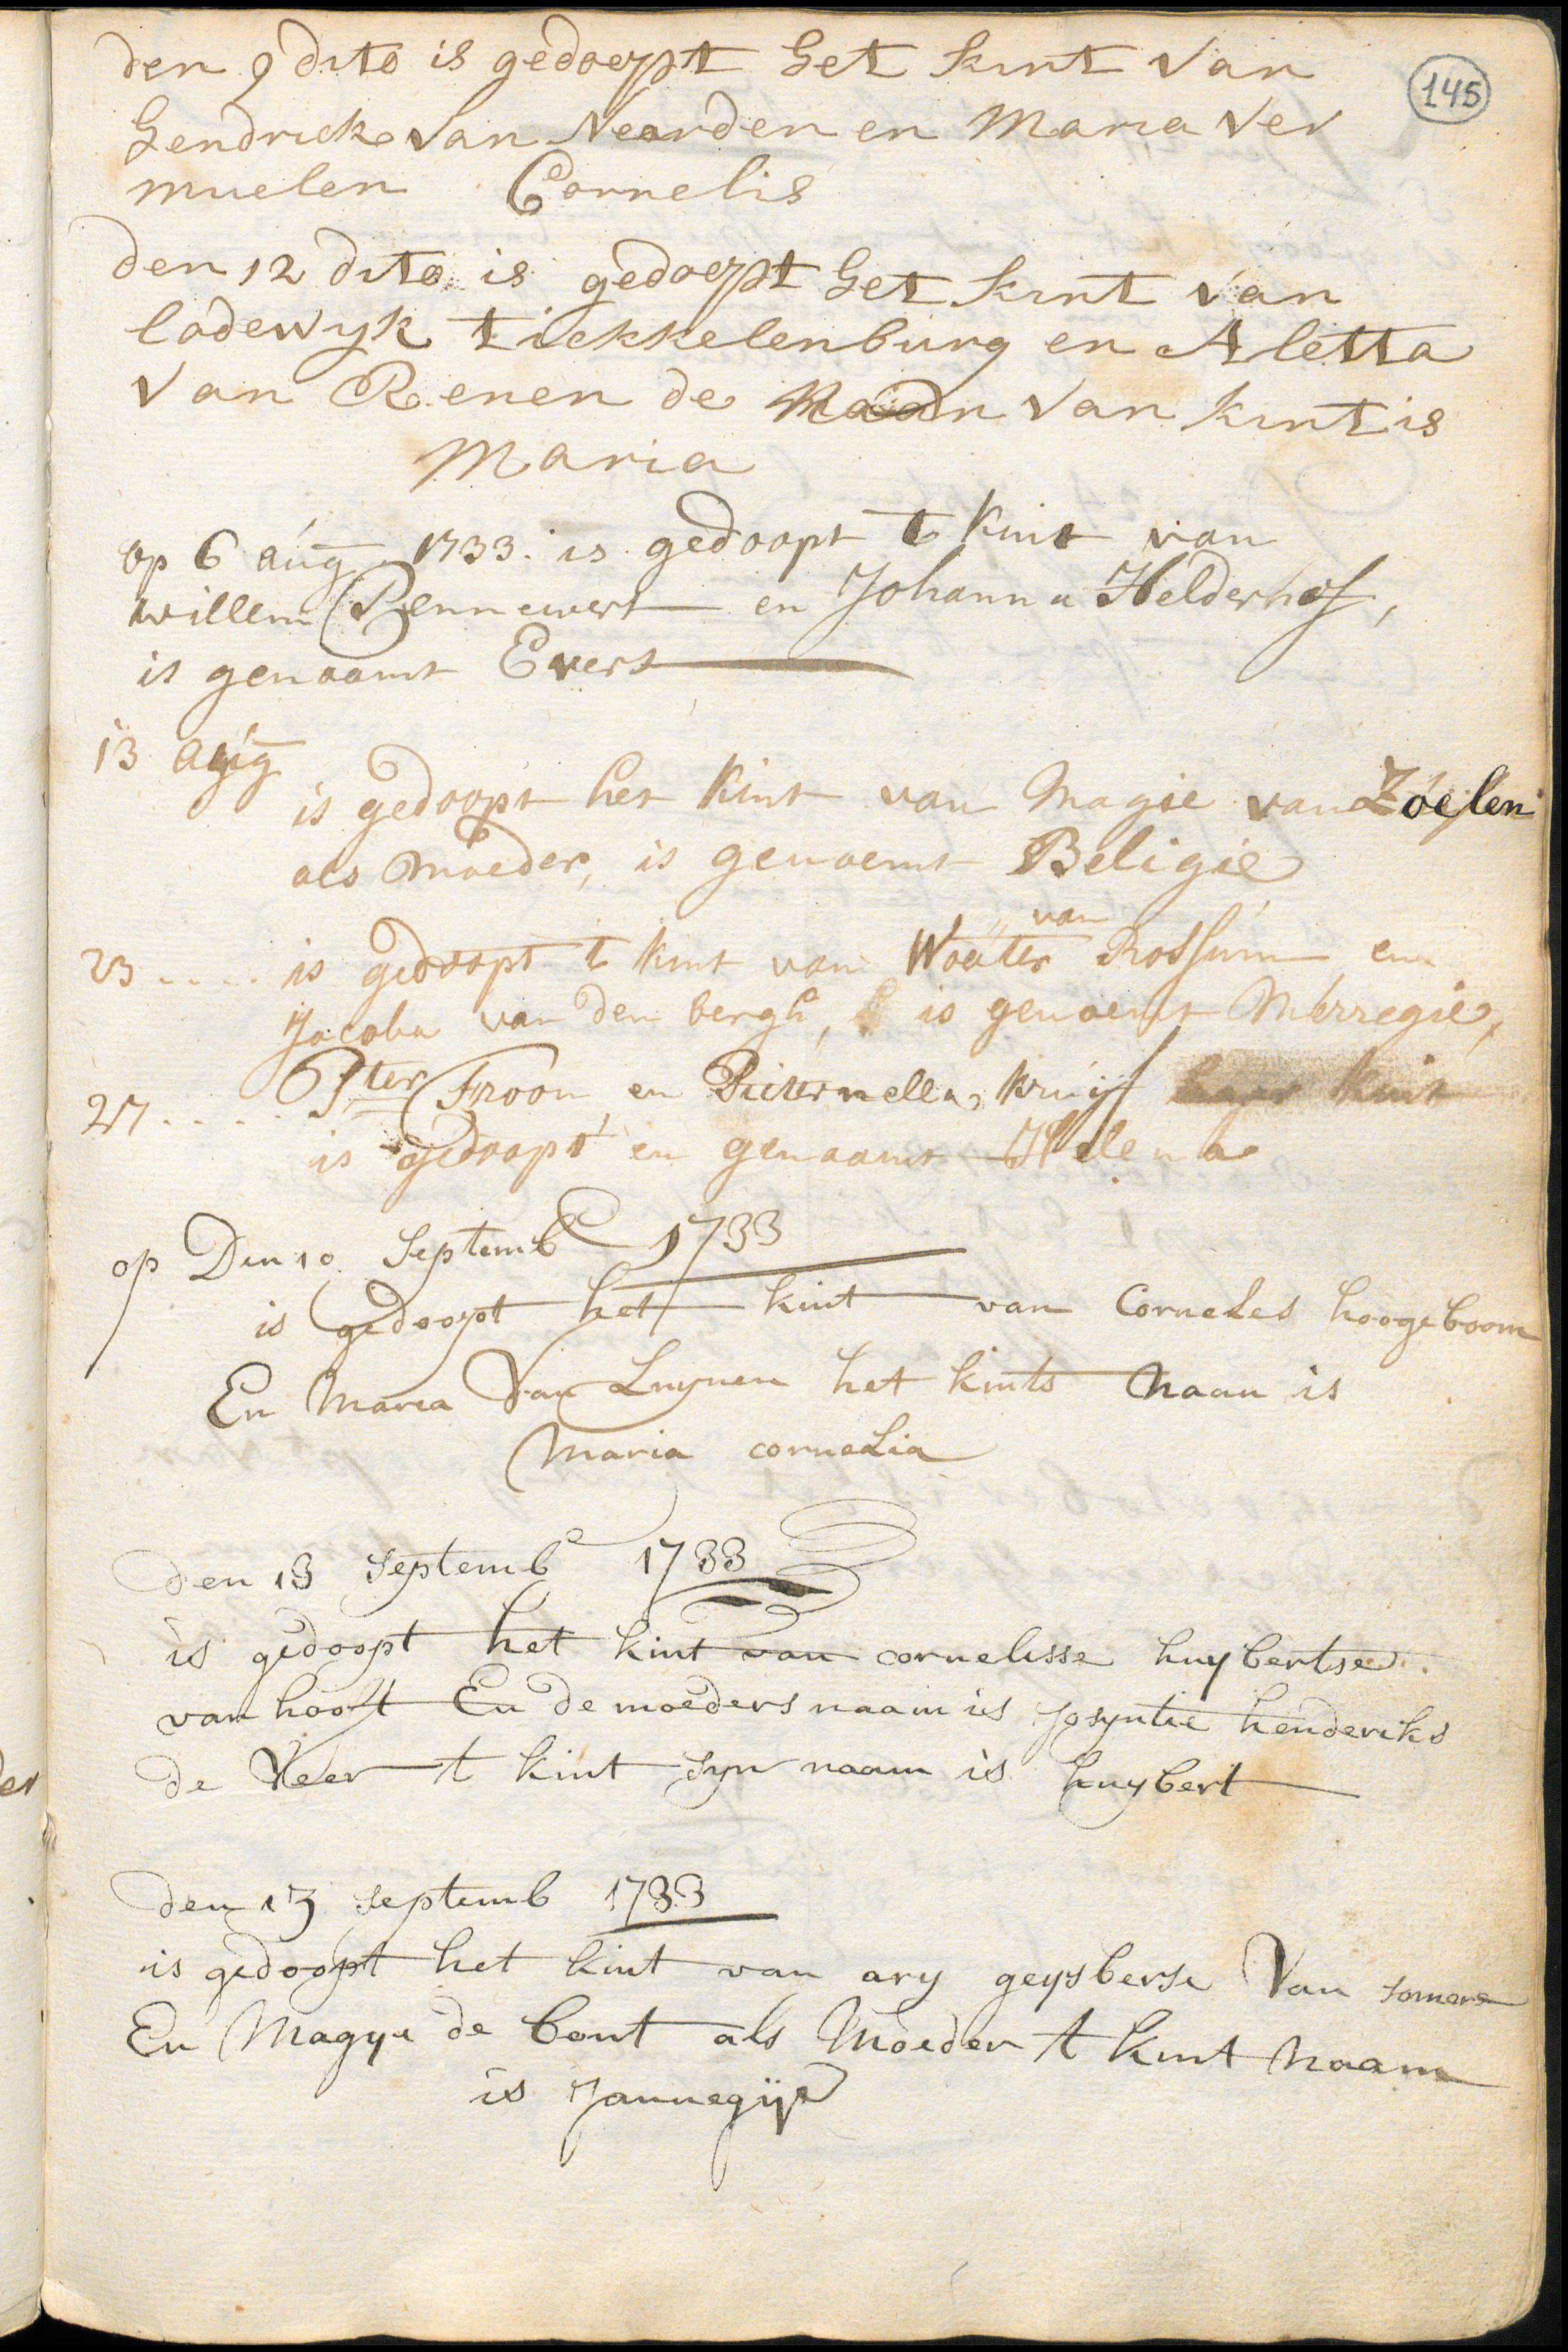 145
den 9 dito is gedoept het kint van
hendrick van Naarden en Maria Ver
muelen Cornelis
den 12 dito is gedoept het kint van
lodewyk tiekkelenburg en Aletta
van Renen de Naan van kint is
Maria
op 6 aug 1733. is gedoopt t kint van
willem Pennewert en Johanna Helderhof,
is genaamt Evert
13 aug
is gedoopt het kint van Magie van Zoelen
als moeder, is genoemt Beligie
van
23 .... is gedoopt t kint van Wouter Rossum en
Jacoba van den bergh, is genoemt Merregie,
27.... Pter Froon en Pieternella kruijf haar kint
is gedoopt en genaamt Helena
op Den 10 Septemb 1733
is gedoopt het kint van Corneles hoogeboom
En Maria Van Luynen het kints Naan is
Maria cornelia
den 13 septemb 1733
is gedoopt het kint van cornelisse huybertse
van hooft En de moeders naam is Josyntie henderiks
de Veer t kint syn naam is huybert
den 13 septemb 1733
is gedoopt het kint van ary geysberse Van someren
En Magye de bont als Moeder t kint Naam
is Jannegije